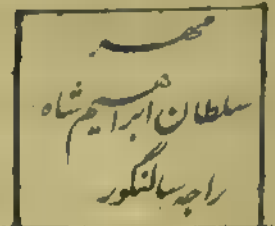 مهر
سلطان ابراهيم شاه
راجه سالنكور